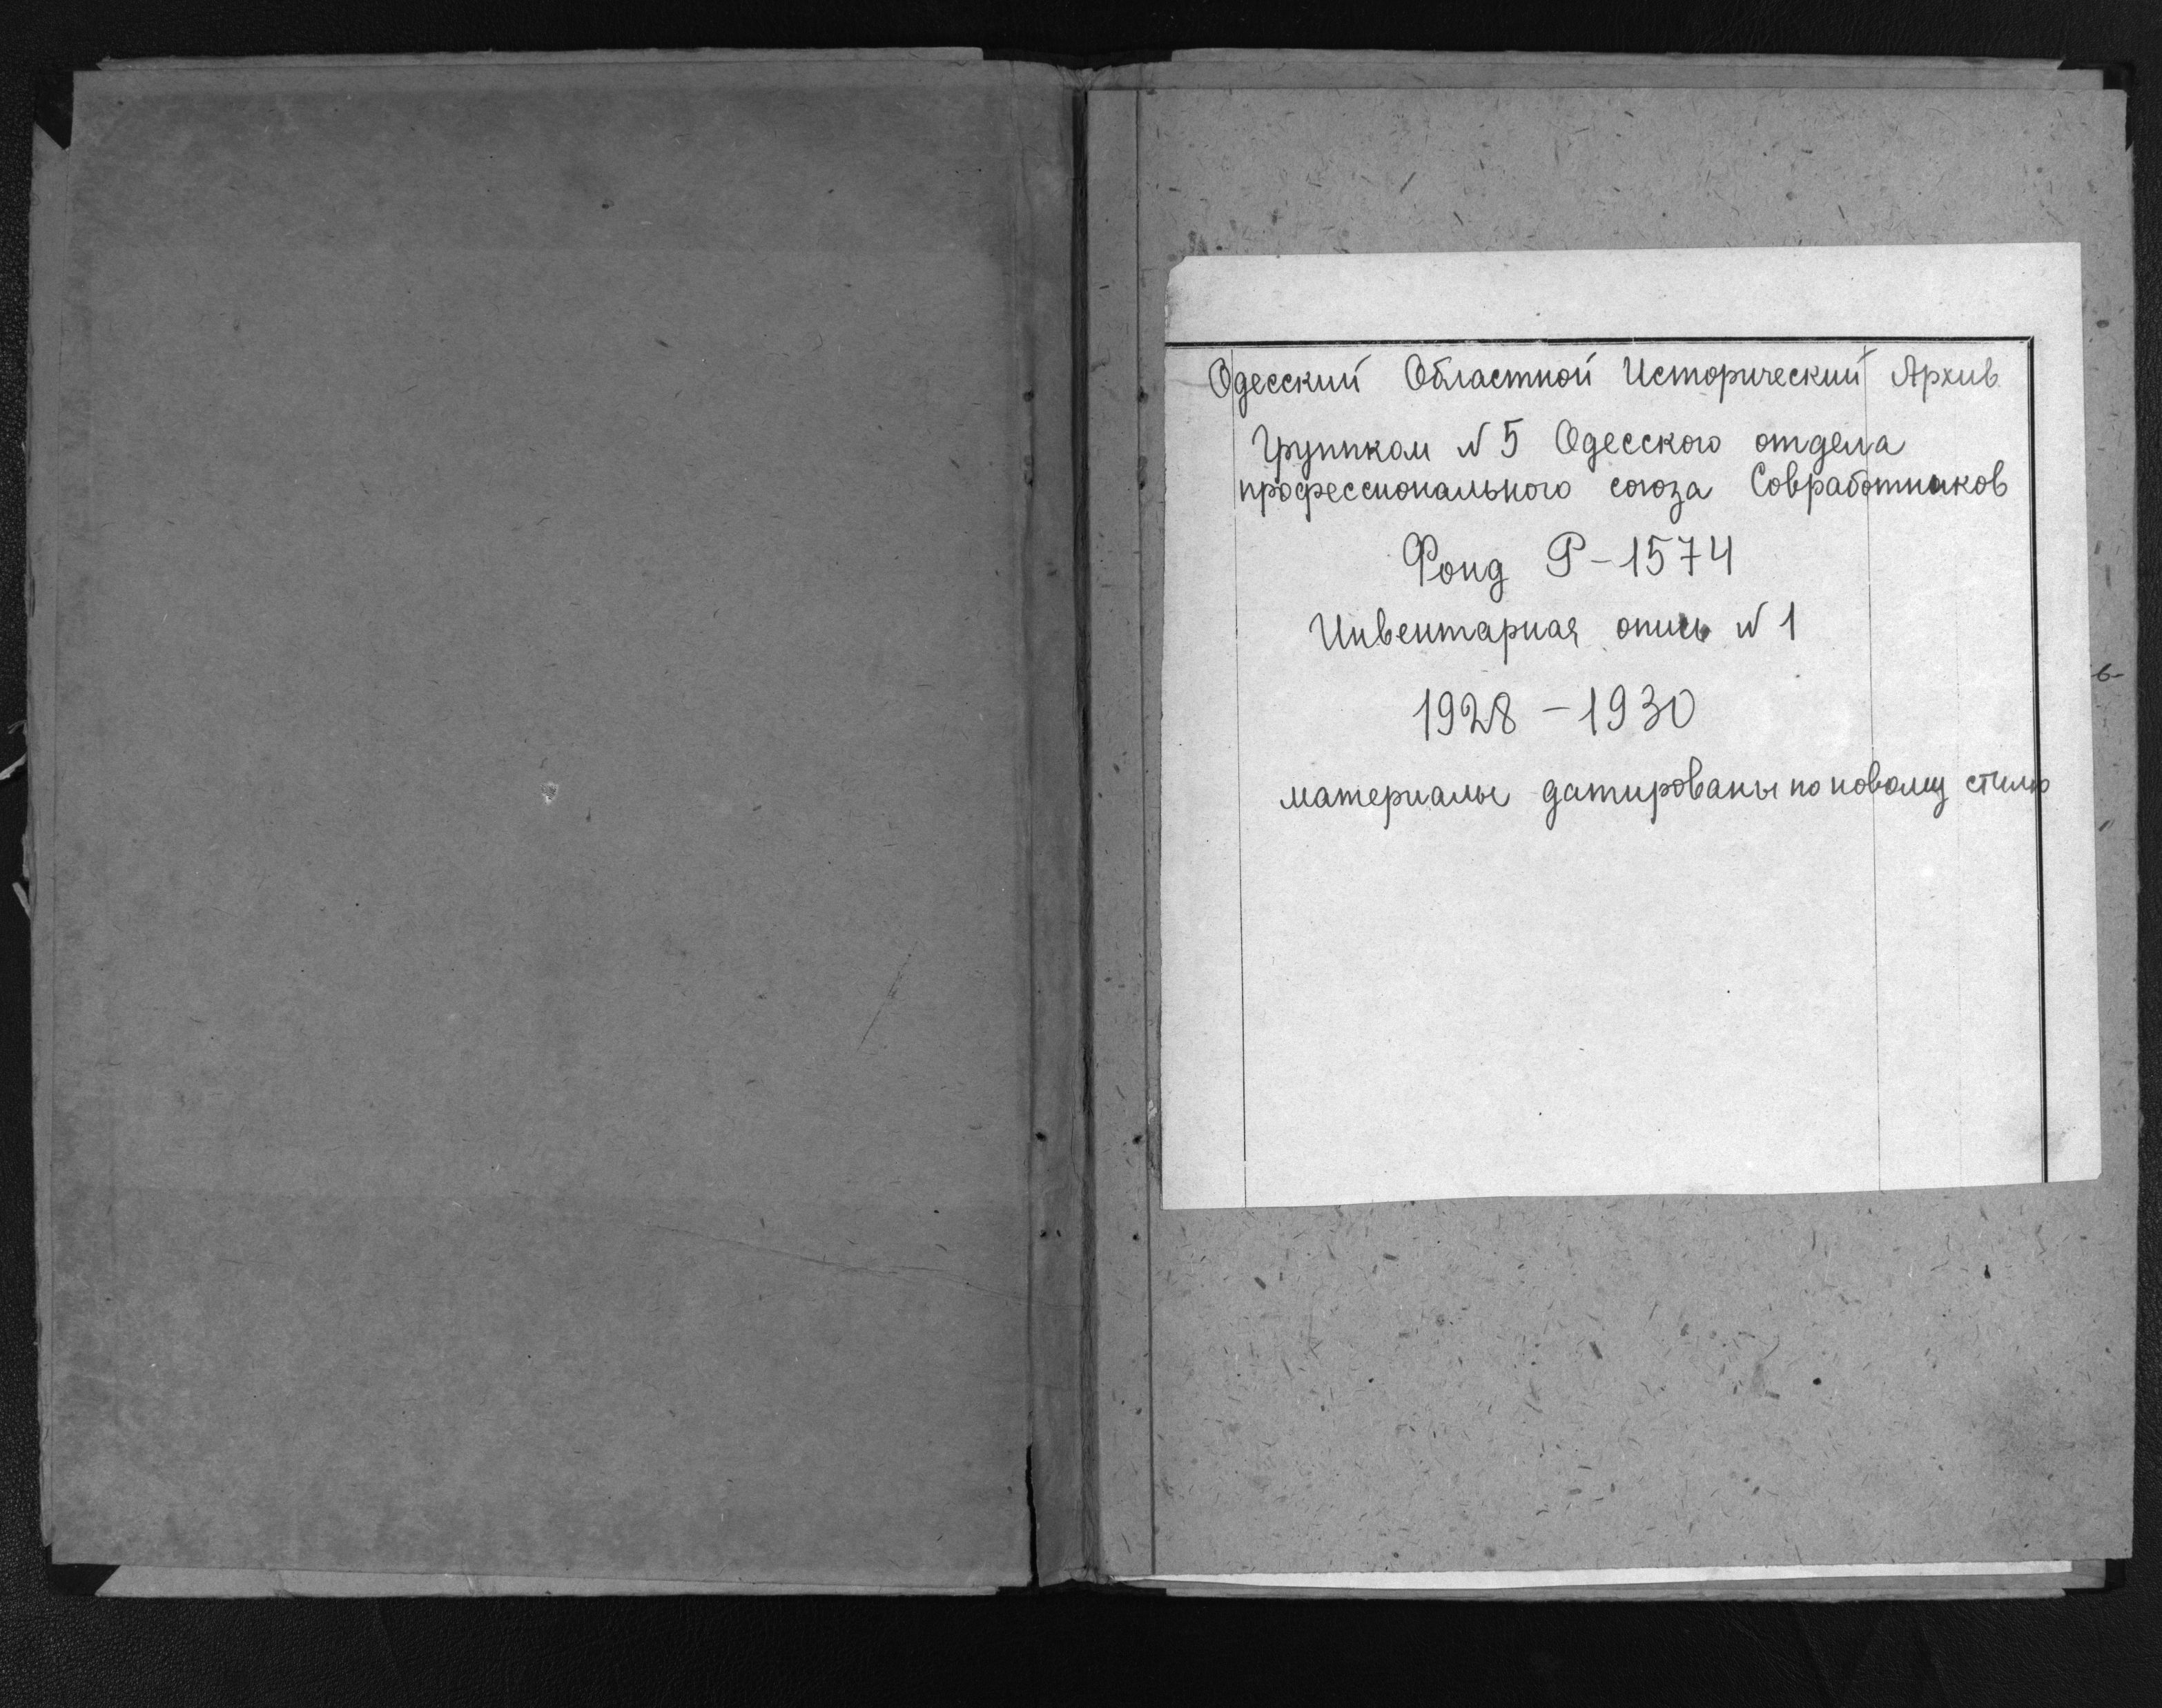 Одесский Областной Исторический Архив
Группком N 5 Одесского отдела
профессионального союза Совработников
Фонд Р-1574
Инвентарная опись N 1
1928 - 1930
материалы датированы по новому стилю